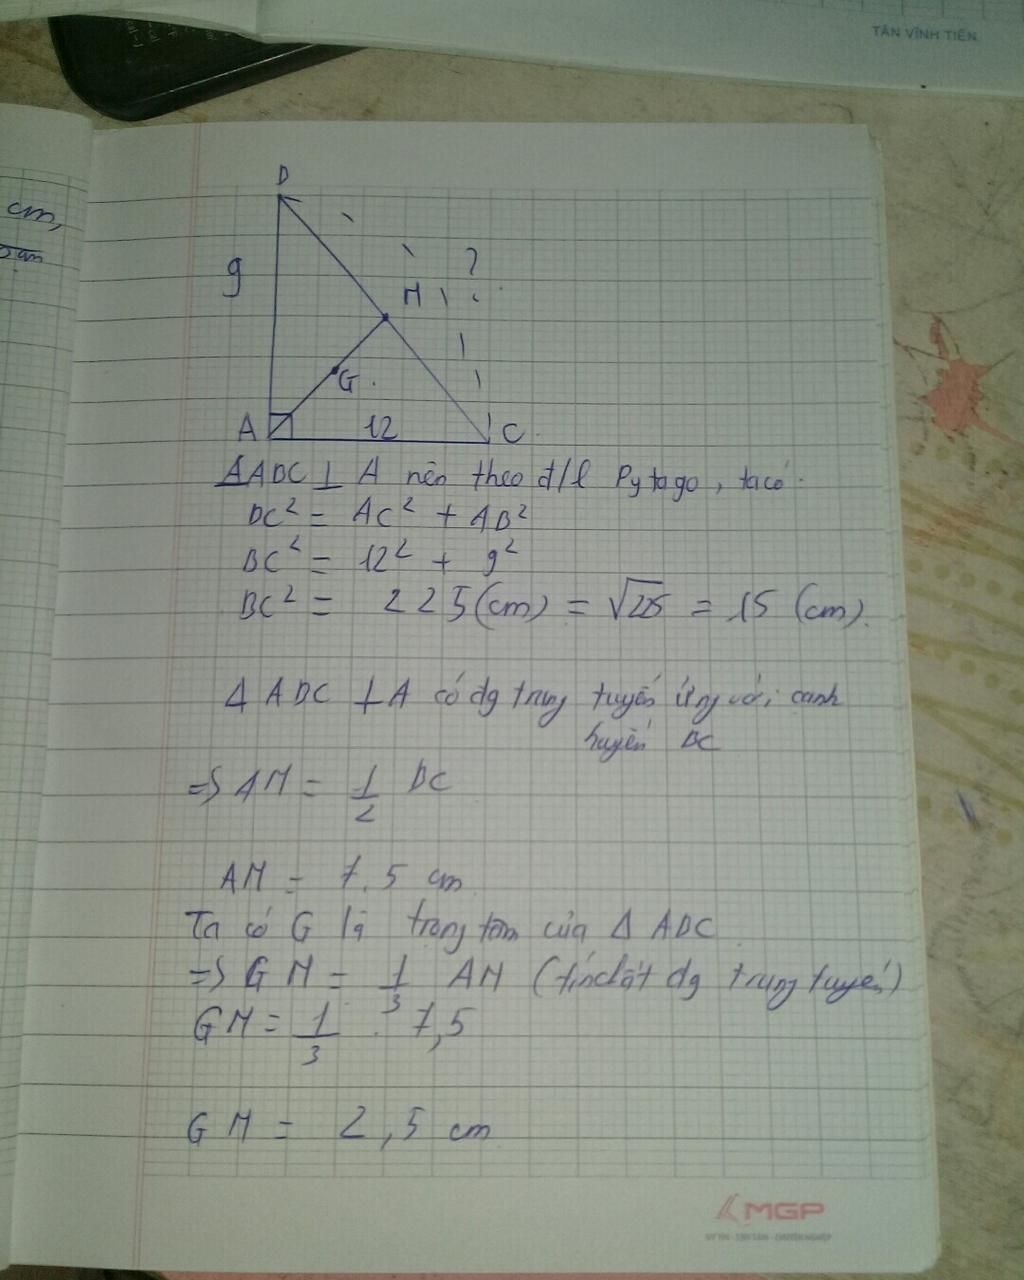 TÂN VĨNH TIẾN
cm,
B
9
?
M
G
A
12
C
ΔABC ⊥ A nên theo đ/l Pytago, ta có
BC² = AC² + AB²
BC² = 12² + 9²
BC² = 225 (cm) = √225 = 15 (cm).
Δ ABC ⊥ A có đg trung tuyến ứng với cạnh
huyền BC
=> AM = 1/2 BC
AM = 7.5 cm
Ta có G là trọng tâm của Δ ABC
=> GM = 1/3 AM (tính chất đg trung tuyến)
GM = 1/3 . 7,5
GM = 2,5 cm
MGP
UY TÍN - TẬN TÂM - CHUYÊN NGHIỆP